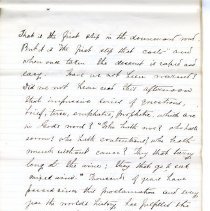 That is the first step in the downward road.
But it is the first step that costs and
when once taken the descent is rapid and
easy. Have we not been warned?
Did we not hear read this afternoon
that impressive list of questions,
brief, terse, emphatic, prophetic, which are
in God's word? "Who hath woe? who hath
sorrow? who hath contentions? who hath
wounds without cause? They that tarry
long at the wine; they that go to seek
mixed wine." Thousands of years have
passed since this proclamation and every
year the world's history has fulfilled the